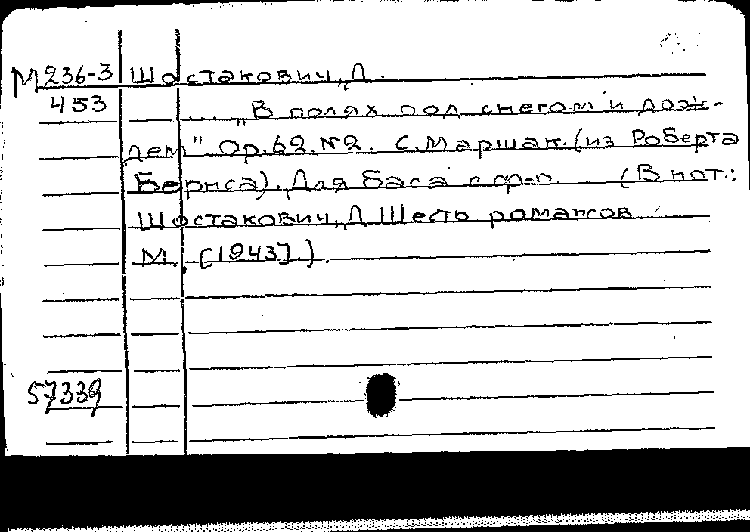 М236-3 Шостакович, Д.
453 ... „В полях под снегом и дож-
дем" Ор.62. №2. С.Маршак (из Роберта
Бернса). Для баса с ф-п. (В нот.:
Шостакович, Д Шесть романсов
М. [1943]).
57339